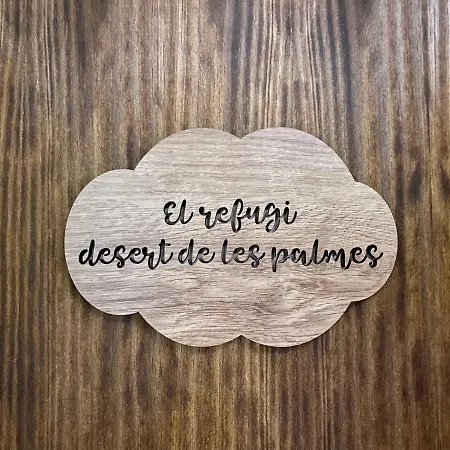 El refugi
desert de les palmes